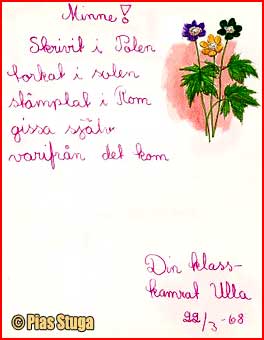 Minne!
Skrivit i Polen
torkat i solen
stämplat i Rom
gissa själv
varifrån det kom
Din klass-
kamrat Ulla
22/3-68
© Pias Stuga